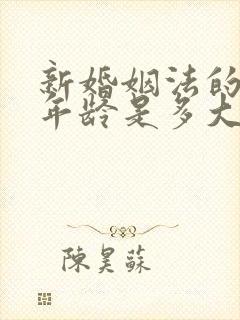 新婚姻法的
年龄是多大
陳昊蘇